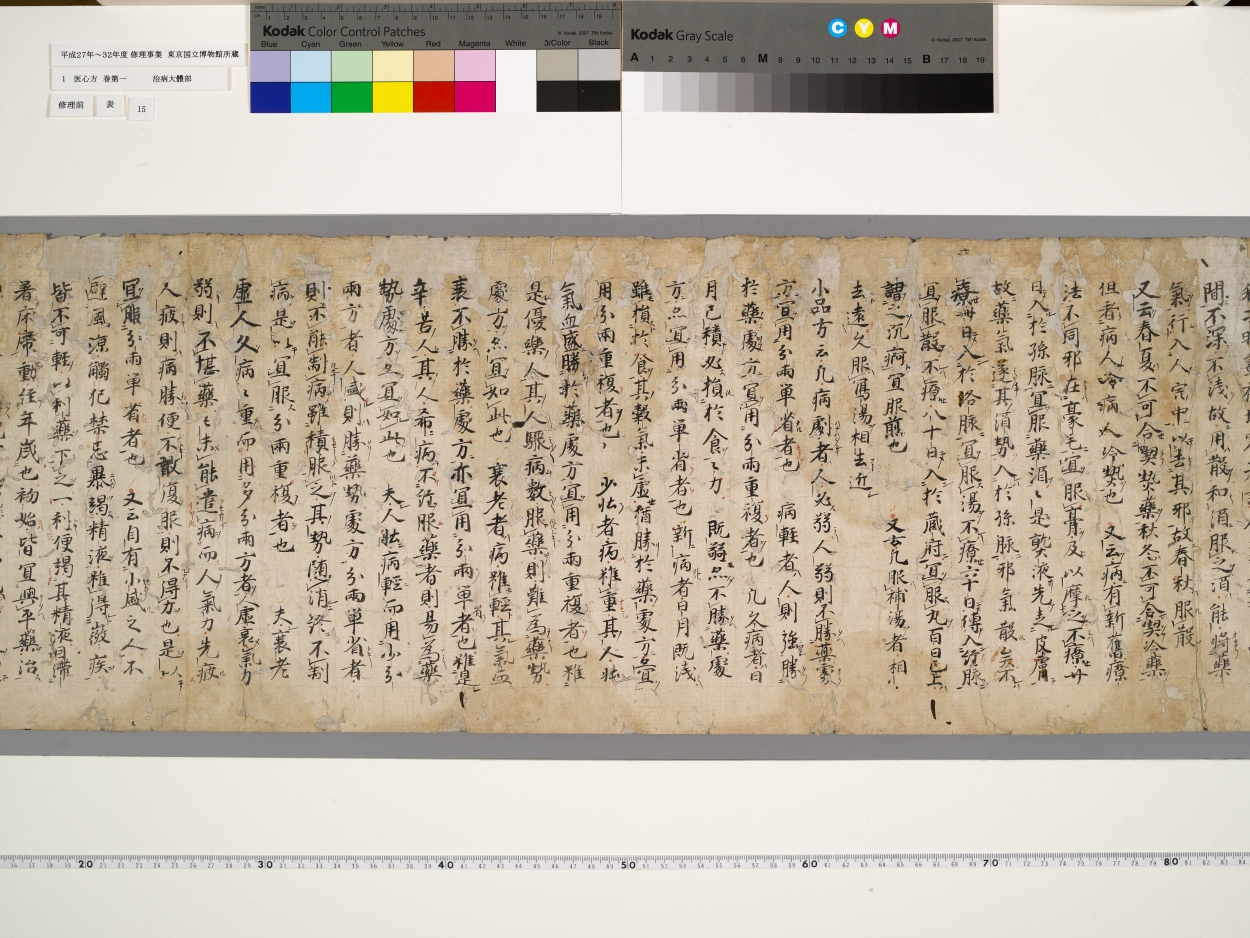 平成27年～32年度 修理事業 東京国立博物館所蔵
1 医心方 巻第一 治病大體部
修理前 表 15
Kodak Color Control Patches
© Kodak, 2007 TM: Kodak
Blue Cyan Green Yellow Red Magenta White 3/Color Black
Kodak Gray Scale
C Y M
© Kodak, 2007 TM: Kodak
A 1 2 3 4 5 6 M 8 9 10 11 12 13 14 15 B 17 18 19
間不深不浅故用散和酒服之酒能将藥
氣行入人完中以去其邪故春秋服散
又云春夏不可合喫熱藥秋冬不可合喫冷藥
但看病人冷病人冷熱也 又云病有新舊療
法不同邪在豪毛宜服膏及以摩之不療廿
日入於孫脉宜服藥酒々是熟液先走皮膚
故藥氣逐其酒勢入於孫脉邪氣散矣不
療卌日入於絡脉宜服湯不療六十日傳入經脉
宜服散不療八十日入於藏府宜服丸百日已上
謂之沉痾宜服煎也 又云凡服補湯者相
去遠久服寫湯相去近
小品方云凡病劇者人必弱人弱則不勝藥處
方宜用分兩單省者也 病輕者人則強勝
於藥處方宜用分兩重複者也 凡久病者日
月已積必損於食々力既弱亦不勝藥處
方亦宜用分兩單省者也 新病者日月既浅
雖損於食其穀氣未虚猶勝於藥處方亦宜
用分兩重複者也 少壮者病雖重其人壮
氣血盛勝於藥處方宜用分兩重複者也雖
是優樂人其人驟病數服藥則難為藥勢
處方亦宜如此也 衰老者病雖輕其氣血
衰不勝於藥處方亦宜用分兩單省者也雖是
辛苦人其人希病不經服藥者則易為藥
勢處方亦宜如此也 夫人壮病輕而用少分
兩方者人盛則勝藥勢處方分兩單省者
則不能制病雖積服之其勢随消終不制
病是以宜服分兩重複者也 夫衰老
虚人久病々重而用多分兩方者人虚衰氣力
弱則不堪藥々未能遣病而人氣力先疲
人疲則病勝便不敢復服則不得力也是以
宜服分兩單省者也 又云自有小盛之人不
避風凉觸犯禁忌暴竭精液雖得微疾
皆不可輕以利藥下之一利便竭其精液困滞
着床席動経年歳也初始皆宜與平藥治
20 30 40 50 60 70 80